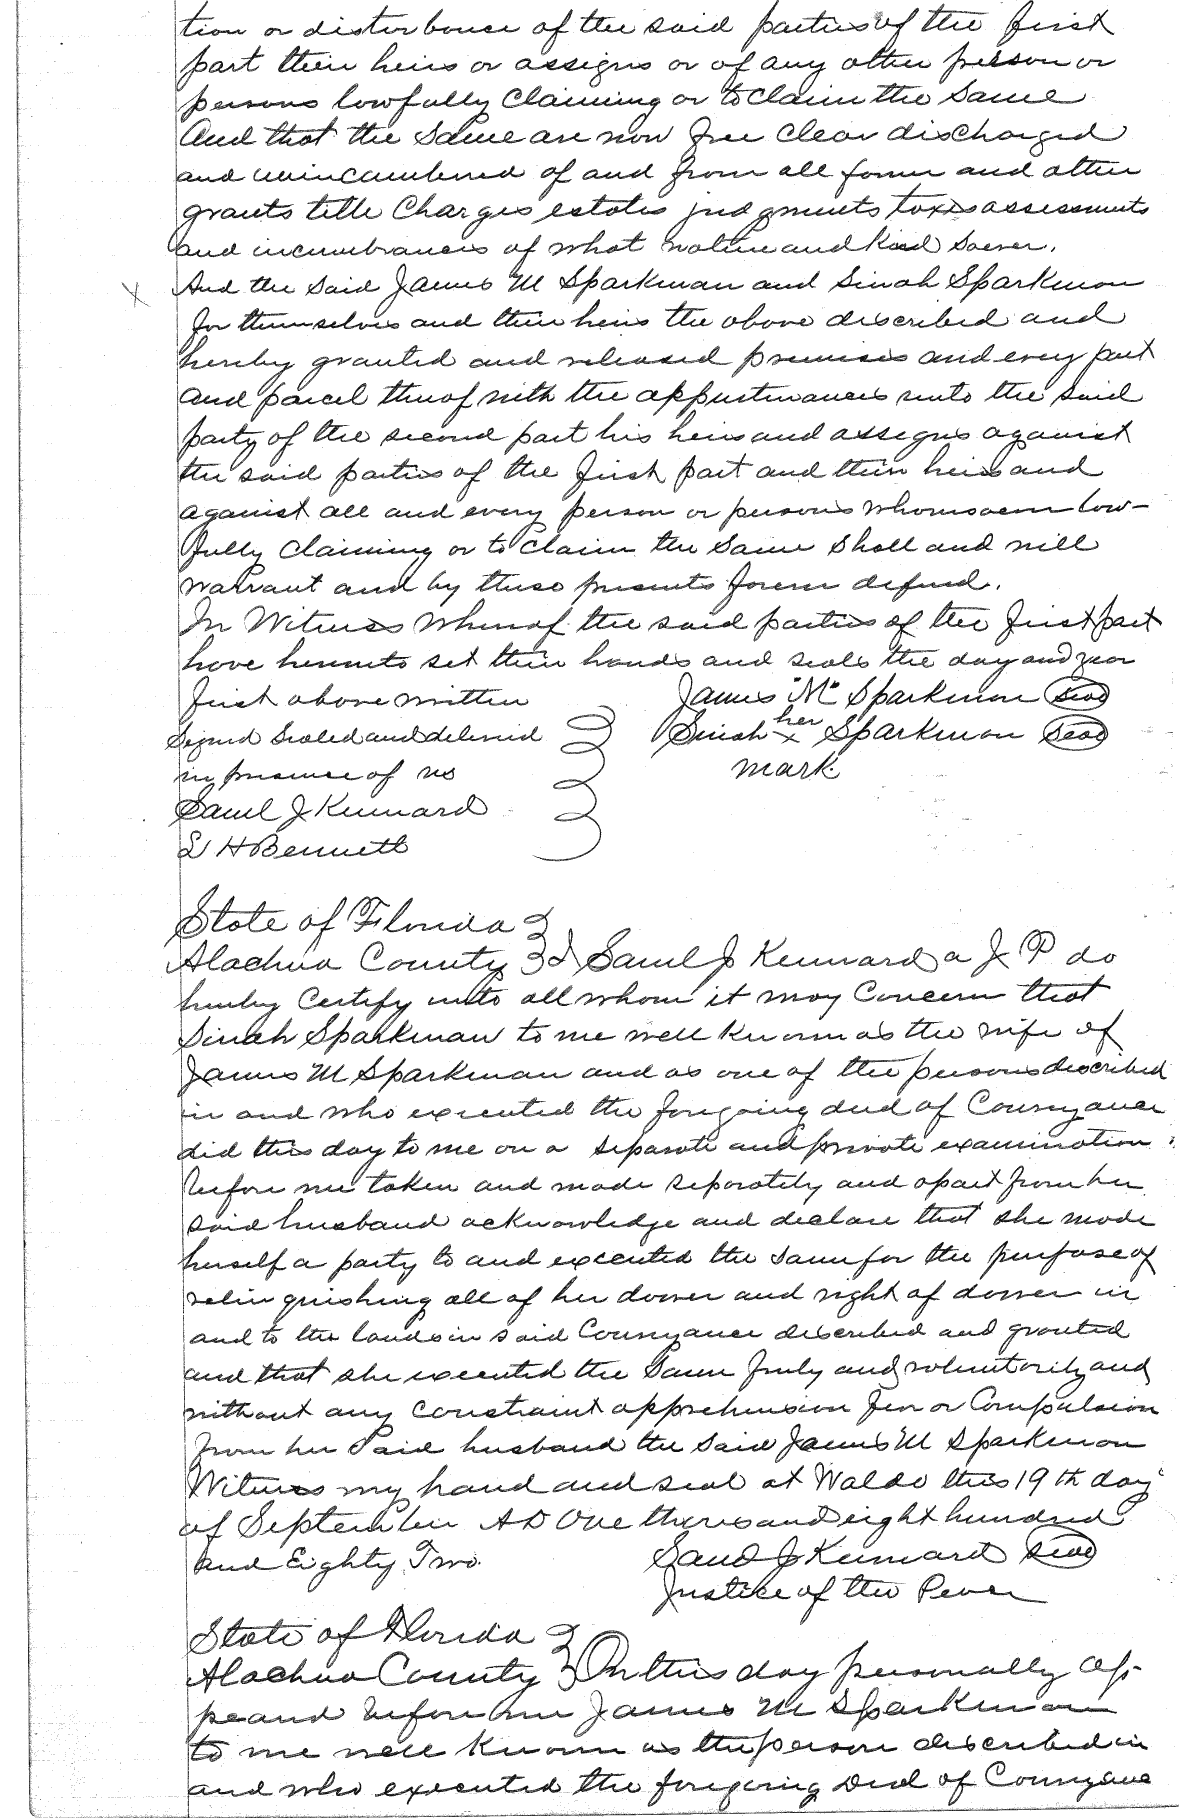 tion or disturbance of the said parties of the first
part their heirs or assigns or of any other person or
persons lawfully Claiming or to Claim the Same
And that the Same are now free Clear discharged
and unincumbered of and from all former and other
grants title Charges estates judgments taxes assessments
and incumbrances of what nature and kind Soever.
X And the Said James M Sparkman and Sinah Sparkman
for themselves and their heirs the above described and
hereby granted and released premises and every part
and parcel thereof with the appurtenances unto the said
party of the second part his heirs and assigns against
the said parties of the first part and their heirs and
against all and every person or persons whomsoever law-
fully Claiming or to Claim the Same Shall and will
warrant and by these presents forever defend.
In Witness Whereof the said parties of the first part
have hereunto set their hands and seals the day and year
first above written James "M" Sparkman Seal
Signed Sealed and delivered Sinah her x Sparkman Seal
in presence of us mark
Saml J Kennard
L H Bennett
State of Florida
Alachua County I Saml J Kennard a J P do
hereby Certify unto all whom it may Concern that
Sinah Sparkman to me well known as the wife of
James M Sparkman and as one of the persons described
in and who executed the foregoing deed of Conveyance
did this day to me on a separate and private examination
before me taken and made separately and apart from her
said husband acknowledge and declare that she made
herself a party to and executed the same for the purpose of
relinquishing all of her dower and right of dower in
and to the lands in said Conveyance described and granted
and that she executed the Same freely and voluntarily and
without any Constraint apprehension fear or Compulsion
from her Said husband the said James M Sparkman
Witness my hand and seal at Waldo this 19th day
of September AD One thousand eight hundred
and Eighty Two. Saml J Kennard Seal
Justice of the Peace
State of Florida
Alachua County On this day personally ap-
peared before me James M Sparkman
to me well known as the person described in
and who executed the foregoing Deed of Conveyance